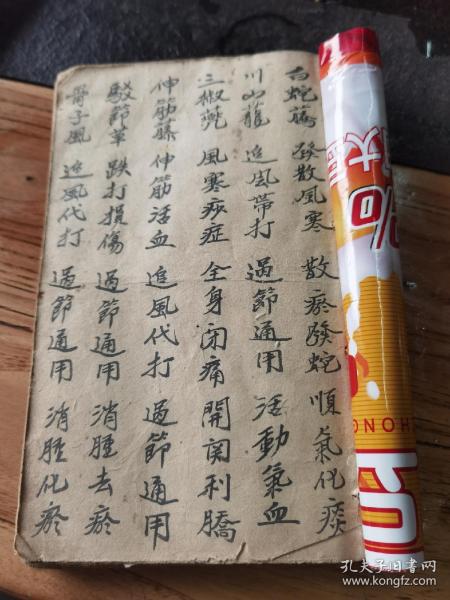 白蛇藤 發散風寒 散瘀發蛇 順氣化痰
川山蘢 追風帶打 過節通用 活動氣血
三椒薧 風寒痧症 全身闭痛 開関利膈
伸筋藤 伸筋活血 追風代打 過節通用
駁節草 跌打損傷 過節通用 消腫去瘀
骨子風 追風代打 過節通用 消腫化瘀
%
HONG
孔夫子旧书网
www.kongfz.com